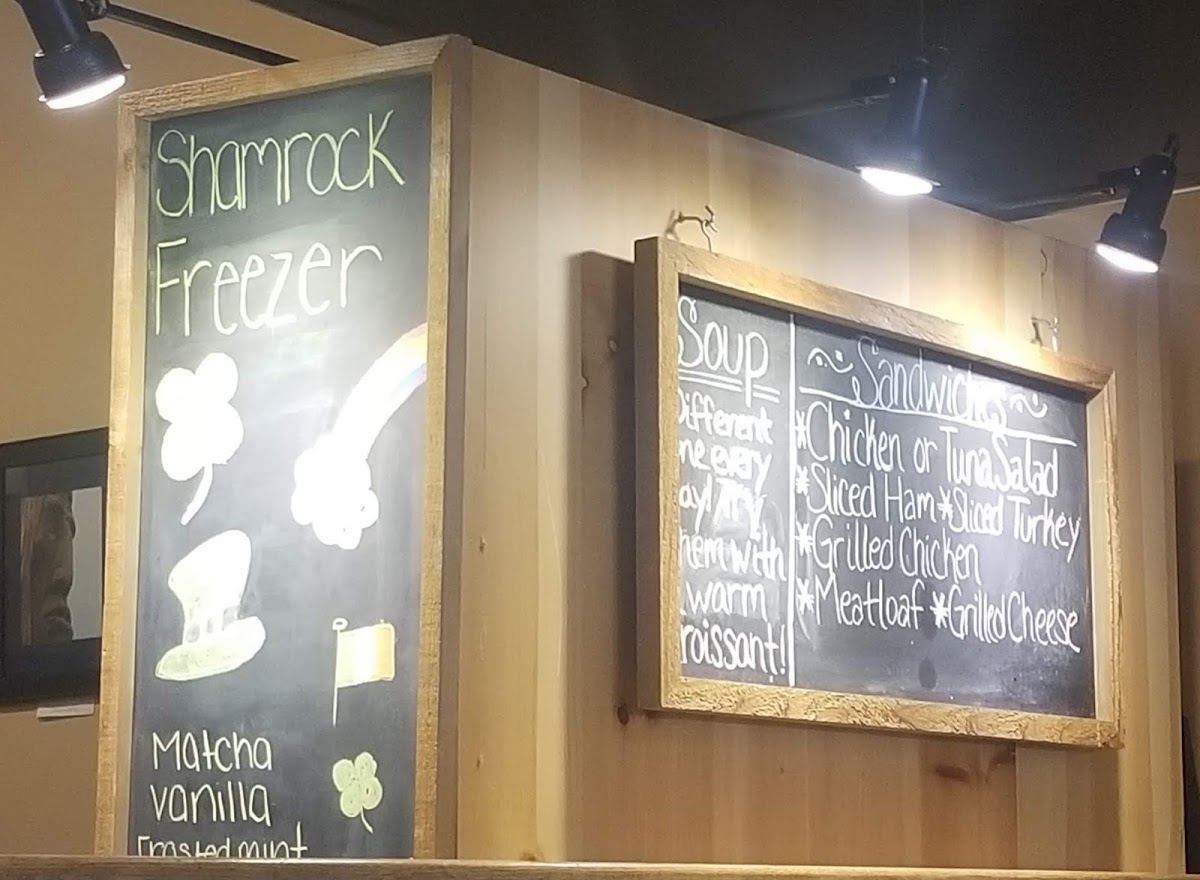 Shamrock
Freezer
Matcha
vanilla
Frosted mint
Soup
Different
one every
day! Try
them with
a warm
croissant!
Sandwiches
*Chicken or Tuna Salad
*Sliced Ham *Sliced Turkey
*Grilled Chicken
*Meatloaf *Grilled Cheese